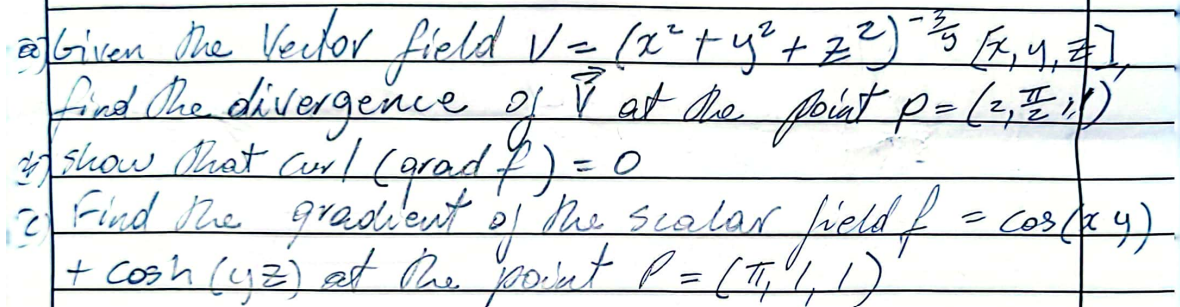 a) Given the Vector field V = (x² + y² + z²)^(-3/5) [x, y, z],
find the divergence of V⃗ at the point p = (2, π/2, 1)
b) show that curl (grad f) = 0
c) Find the gradient of the scalar field f = cos(xy)
+ cosh (yz) at the point P = (π, 1, 1)